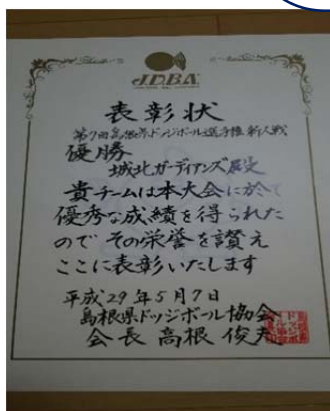 J.D.B.A.
表彰状
第7回島根県ドッジボール選手権 新人戦
優勝
城北ガーディアンズ殿
貴チームは本大会に於て
優秀な成績を得られた
ので その栄誉を讃え
ここに表彰いたします
平成29年5月7日
島根県ドッジボール協会
会長 高根 俊夫